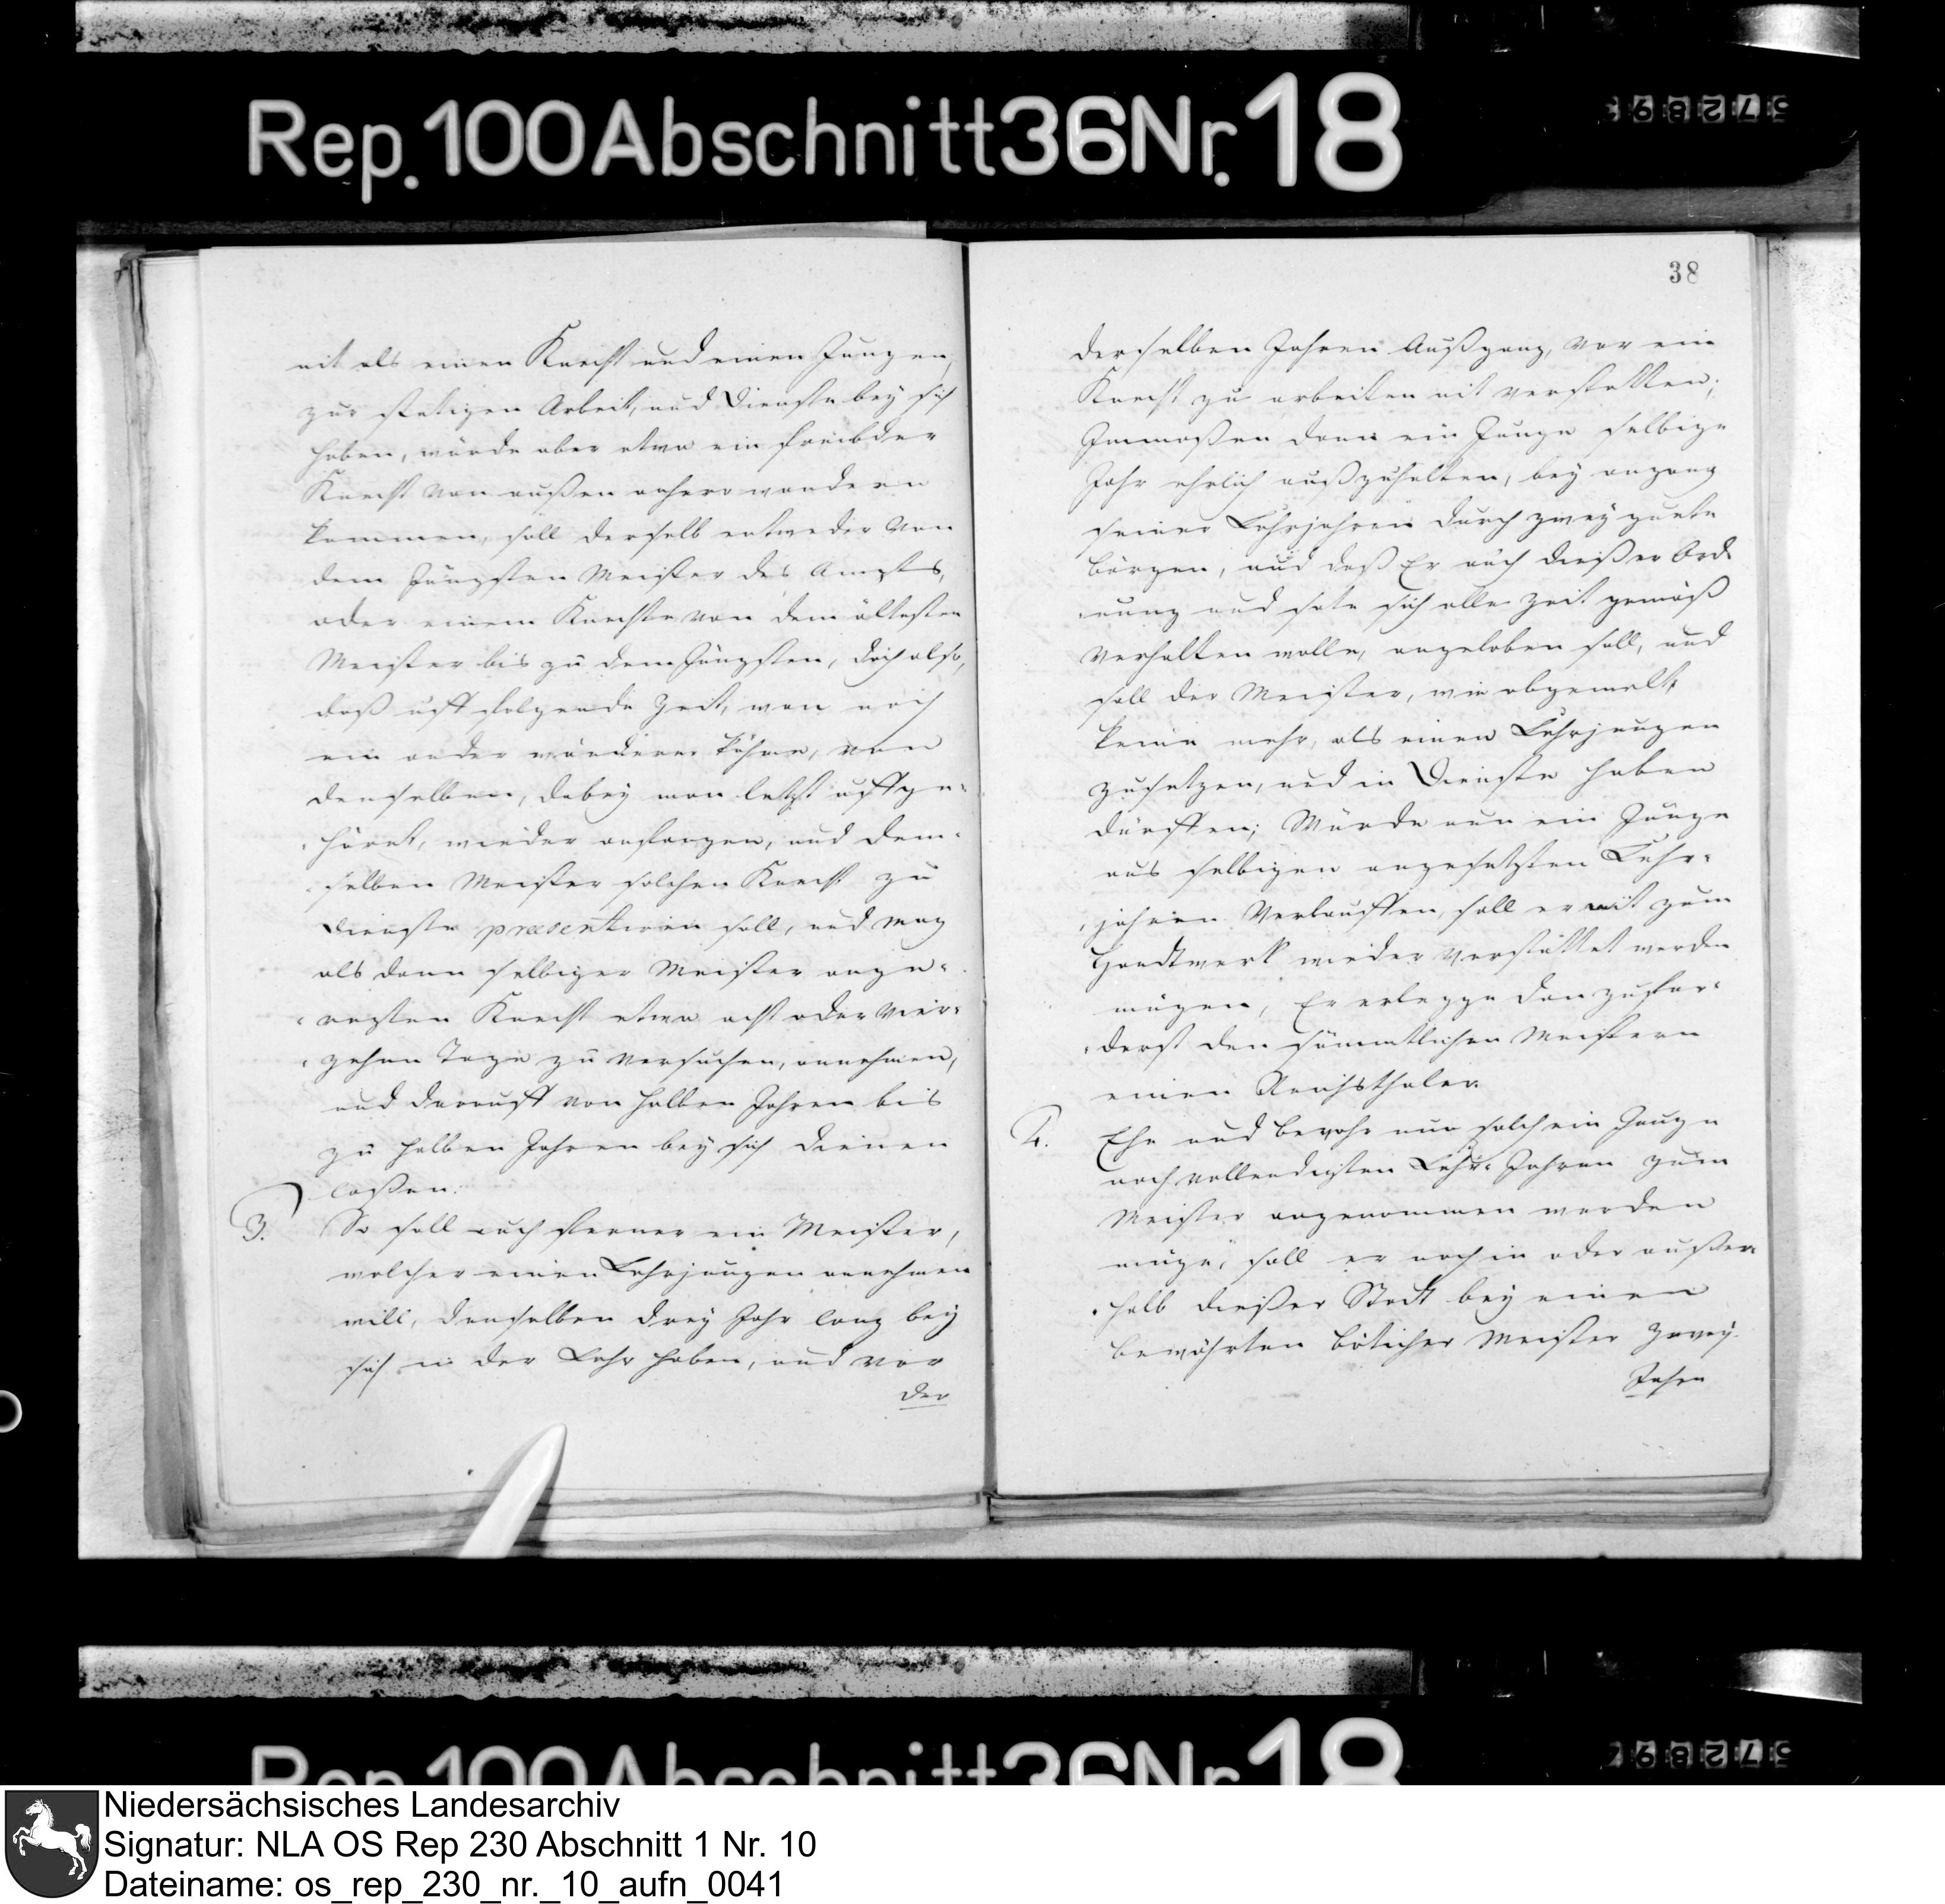 Rep. 100 Abschnitt 36 Nr. 18
nit als einen Knecht und einen Jungen,
zur stetigen Arbeit, und Dienste bey sich
haben, würde aber etwa ein frembder
Knecht von außen anhero wandern
kommen, soll derselb entweder von
dem Jüngsten Meister des Ampts,
oder einem Knechte von dem ältesten
Meister bis zu dem Jüngsten, doch also,
daß uff folgende Zeit, wan noch
ein ander wanderer köhme, von
demselben, dabey man letzt uffge-
höret, wieder anfangen, und dem-
selben Meister solchen Knecht zu
Dienste præsentiren soll, und mag
als dann selbiger Meister ange-
regten Knecht etwa acht oder vier-
zehen Tage zu versuchen, annehmen,
und darauff von halben Jahren bis
zu halben Jahren bey sich dienen
laßen.
3. So soll auch ferner ein Meister,
welcher einen Lehrjungen annehmen
will, denselben drey Jahr lang bey
sich in der Lehr haben, und vor
der
38
derselben Jahren Außgang, vor ein
Knecht zu arbeiten nit verstatten;
Inmaßen dann ein Junge selbige
Jahr ehrlich außzuhalten, bey angang
seiner Lehrjahren durch zwey guete
Börgen, und daß Er auch dießer Ord-
nung und sate sich alle Zeit gemäß
Verhalten wolle, angeloben soll, und
soll der Meister, wie obgemelt,
keine mehr, als einen Lehrjungen
zusetzen, und in Dienste haben
dürffen; Würde nun ein Junge
aus selbigen angesetzten Lehr-
jahren Verlauffen, soll er nit zum
Handtwerk wieder verstattet werden
mögen, Er erlegge dan zufor-
derst den sämmtlichen Meistern
einen Reichsthaler
4. Ehe und bevohr nun solch ein Junge
nach vollendigten Lehr-Jahren zum
Meister angenommen werden
müge, soll er noch in oder außer-
halb dießer Stadt bey einen
bewährten böticher Meister Zwey
Jahre
Rep. 100 Abschnitt 36 Nr. 18
Niedersächsisches Landesarchiv
Signatur: NLA OS Rep 230 Abschnitt 1 Nr. 10
Dateiname: os_rep_230_nr._10_aufn_0041